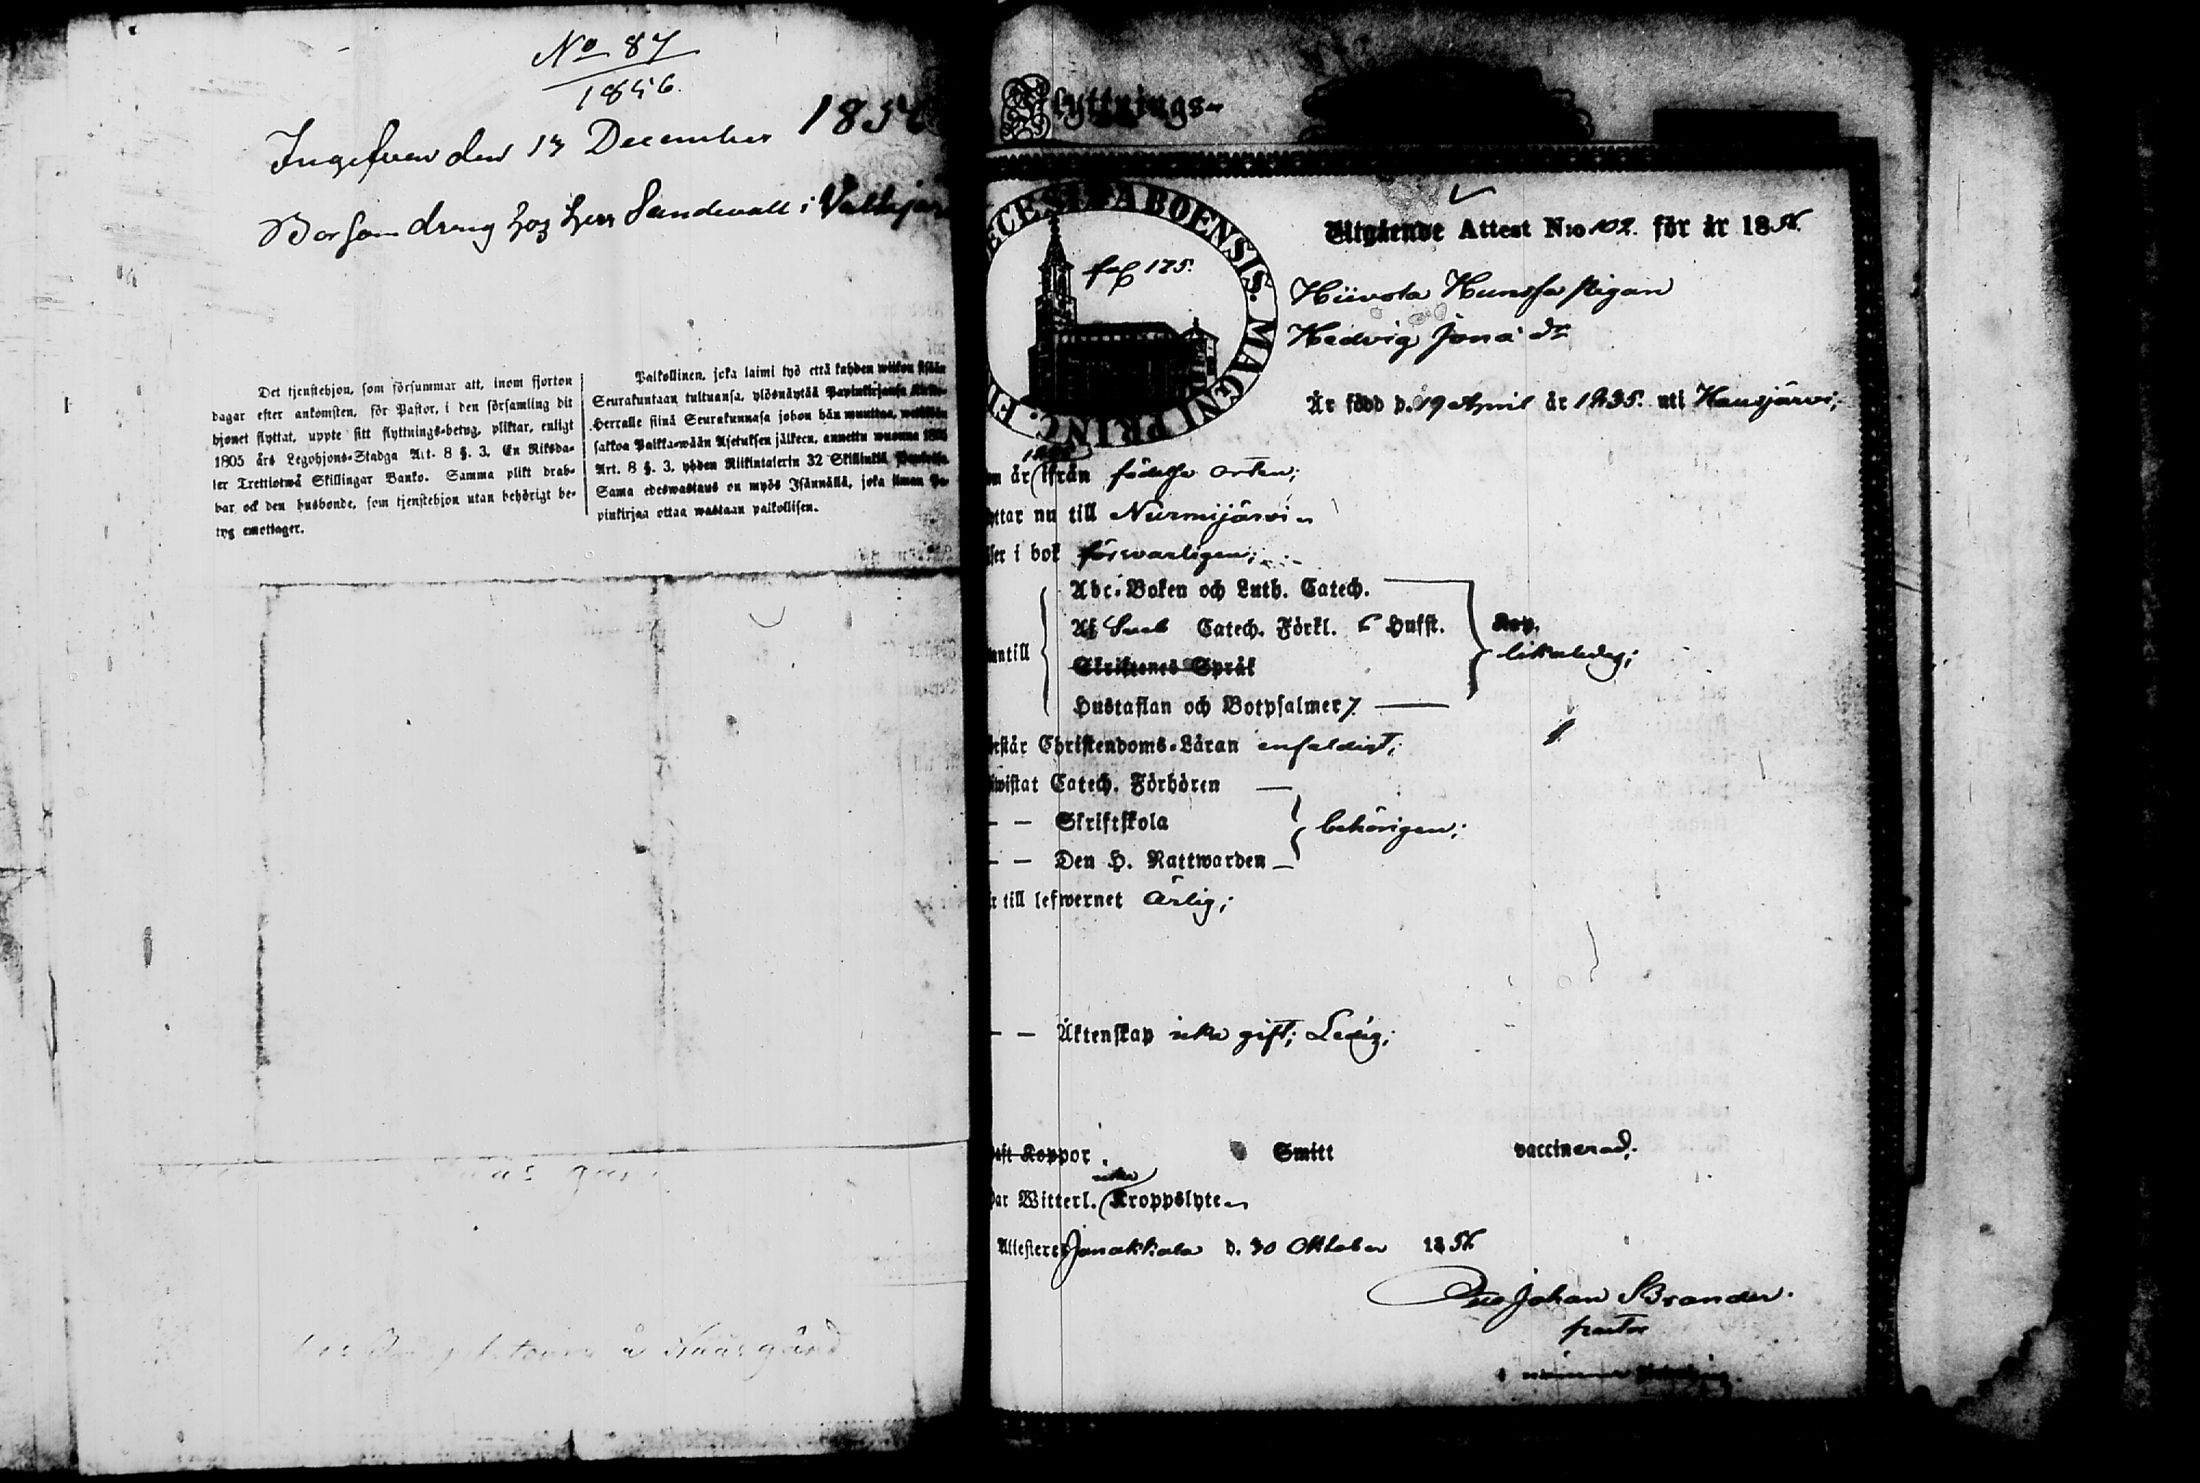 No 87
1856.
Ingifven den 13 December 1856
Bor som dräng hos herr Sandewall i
Det tjenstehjon, som försummar att, inom fjorton
dagar efter ankomsten, för Pastor, i den församling dit
hjonet flyttat, uppte sitt flyttnings-betyg, pliktar, enligt
1805 års Legohjons-Stadga Art. 8 §. 3. En Riksda-
ler Trettiotwå Skillingar Banko. Samma plikt drab-
bar ock den husbonde, som tjenstehjon utan behörigt be-
tyg emottager.
Palkollinen, joka laimi lyö että kahden wiikon sisään
Seurakuntaan tultuansa, ylösnäytää Papinkirjansa Kirkko-
Herralle siinä Seurakunnasa johon hän muuttaa, wetäkön
sakkoa Palkka-wään Asetuksen jälkeen, annettu wuonna 1805
Art. 8 §. 3, yhden Riikintalerin 32 Skillinkiä
Sama edeswastaus on myös Isännällä, joka ilman Pa-
pinkirjaa ottaa wastaan palkollisen.
Flyttnings-
ABOENSIS. MAGNI PRINC.
fol 175.
Utgående Attest N:o 102. för år 1856.
Hiivola pigan
Hedvig Jona dr
Är född d. 19 April år 1835. uti Hausjärvi;
om år ifrån födelse orten;
yttar nu till Nurmijärvi
ser i bok försvarligen;
Abc-Boken och Luth. Catech.
Af Sveb Catech. Förkl. 6 Hufst.
likaledes;
ntill
Skriftenes Språk
Hustaflan och Botpsalmer 7.
estår Christendoms-Läran enfaldigt;
wistat Catech. Förhören
— — Skriftskola
behörigen;
— — Den H. Nattwarden
r till lefwernet ärlig;
— — Äktenskap icke gift; Ledig;
aft Koppor Smitt vaccinerad.
icke
ar Witterl. Kroppslyte
Attesterer Janakkala d. 30 Oktober 1856
Johan Brander.
pastor